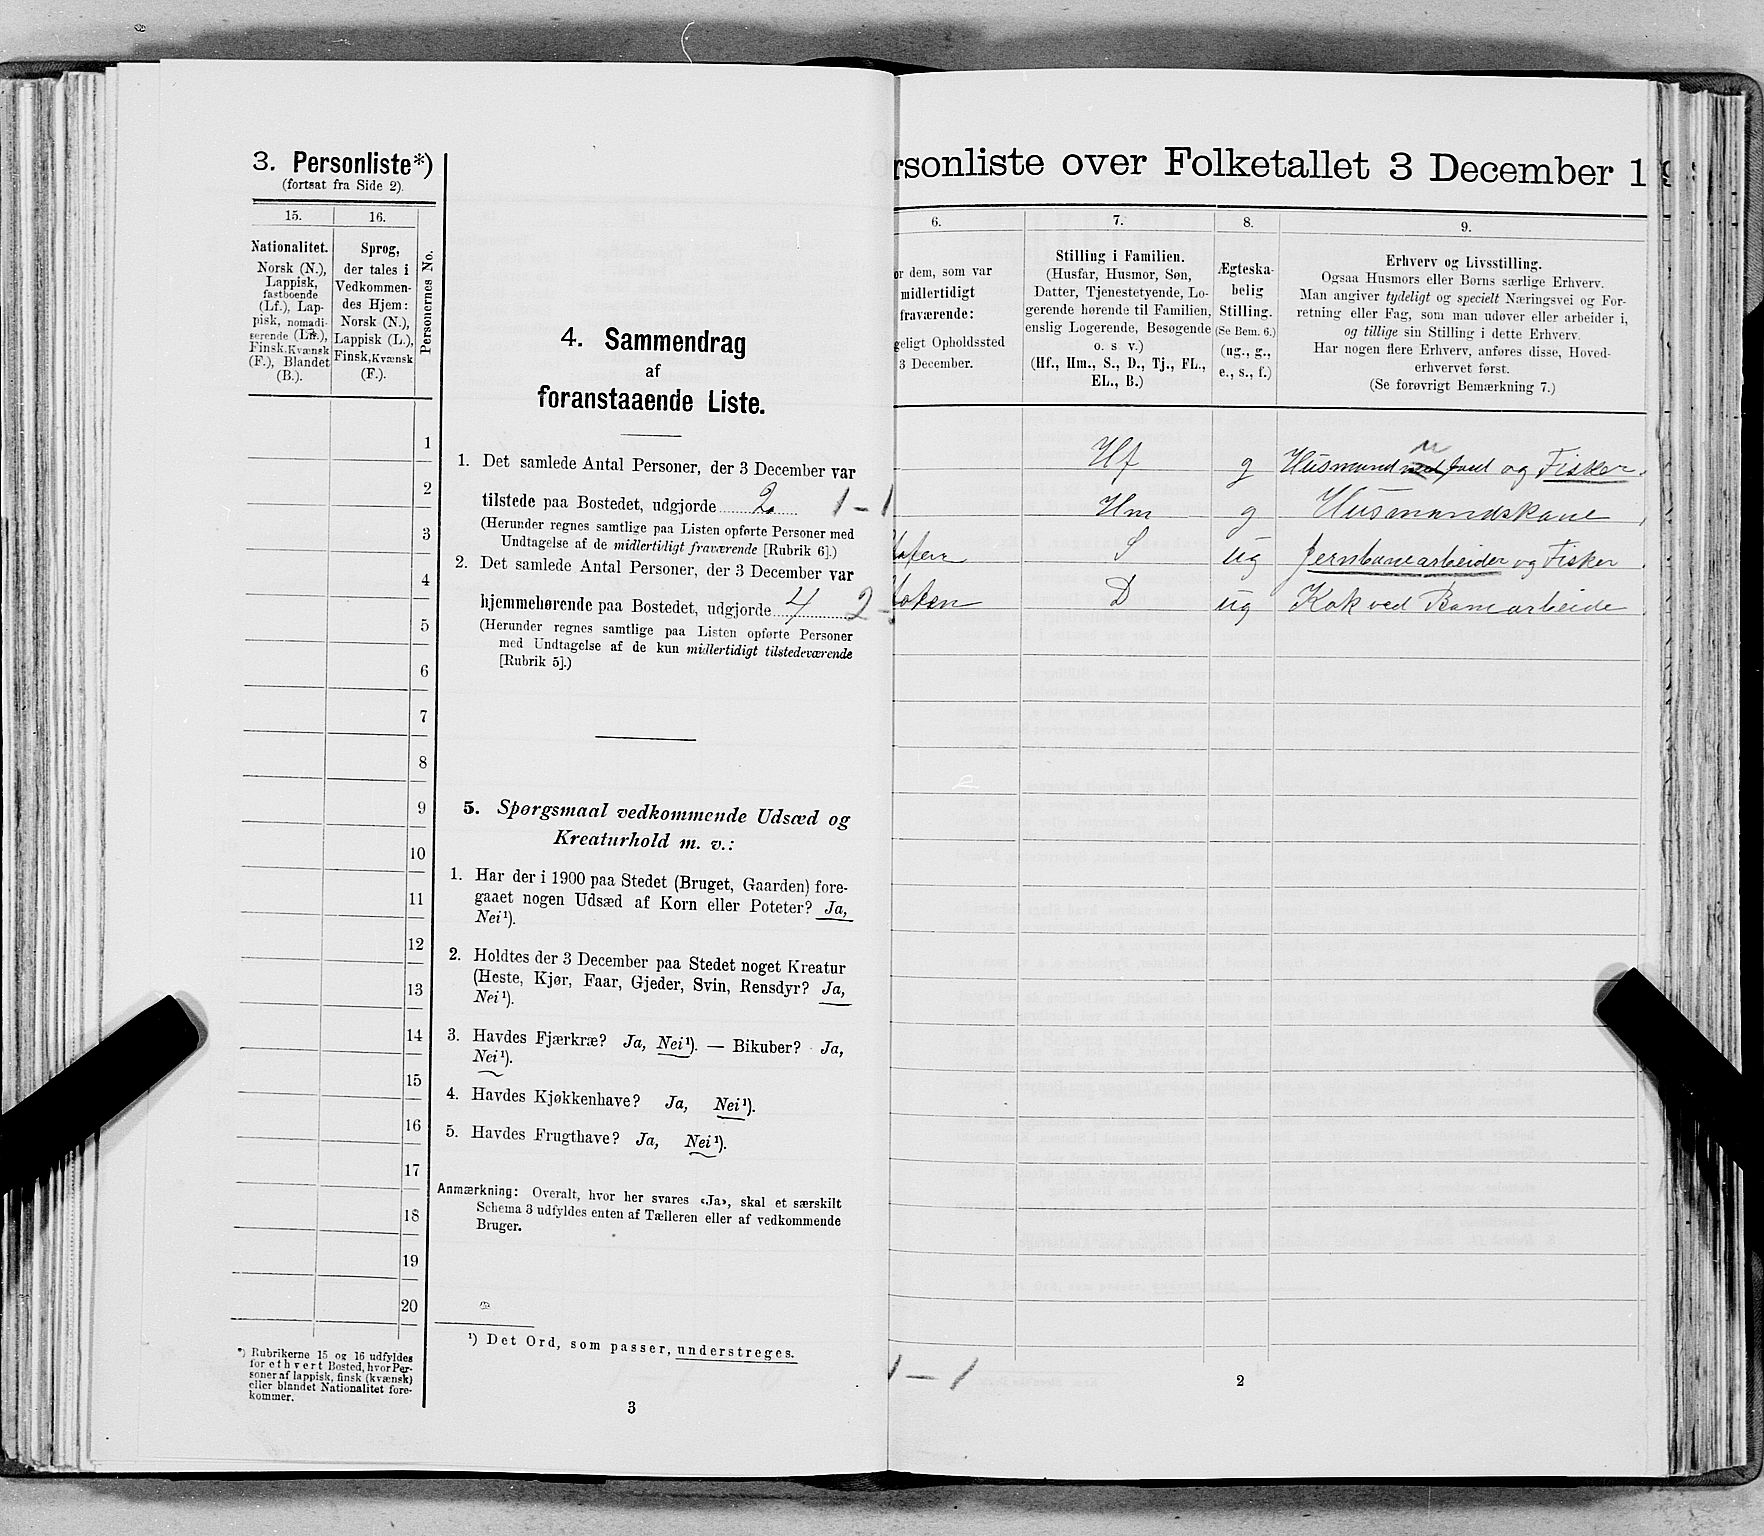 3. Personliste*)
(fortsat fra Side 2).
15.
16.
Personernes No.
Nationalitet.
Norsk (N.),
Lappisk,
fastboende
(Lf.), Lap-
pisk, nomadi-
serende (Ln.),
Finsk, Kvænsk
(F.), Blandet
(B.).
Sprog,
der tales i
Vedkommen-
des Hjem:
Norsk (N.),
Lappisk (L.),
Finsk, Kvænsk
(F.).
1
2
3
4
5
6
7
8
9
10
11
12
13
14
15
16
17
18
19
20
*) Rubrikerne 15 og 16 udfyldes
for ethvert Bosted, hvor Per-
soner af lappisk, finsk (kvænsk)
eller blandet Nationalitet fore-
kommer.
4. Sammendrag
af
foranstaaende Liste.
1. Det samlede Antal Personer, der 3 December var
tilstede paa Bostedet, udgjorde 2 1 - 1
(Herunder regnes samtlige paa Listen opførte Personer med
Undtagelse af de midlertidigt fraværende [Rubrik 6].)
2. Det samlede Antal Personer, der 3 December var
hjemmehørende paa Bostedet, udgjorde 4 2 -
(Herunder regnes samtlige paa Listen opførte Personer
med Undtagelse af de kun midlertidigt tilstedeværende
[Rubrik 5].)
5. Spørgsmaal vedkommende Udsæd og
Kreaturhold m. v.:
1. Har der i 1900 paa Stedet (Bruget, Gaarden) fore-
gaaet nogen Udsæd af Korn eller Poteter? Ja,
Nei¹).
2. Holdtes der 3 December paa Stedet noget Kreatur
(Heste, Kjør, Faar, Gjeder, Svin, Rensdyr? Ja,
Nei¹).
3. Havdes Fjærkræ? Ja, Nei¹). — Bikuber? Ja,
Nei¹).
4. Havdes Kjøkkenhave? Ja, Nei¹).
5. Havdes Frugthave? Ja, Nei¹).
Anmærkning: Overalt, hvor her svares «Ja», skal et særskilt
Schema 3 udfyldes enten af Tælleren eller af vedkommende
Bruger.
¹) Det Ord, som passer, understreges.
3
rsonliste over Folketallet 3 December 19
6.
7.
8.
9.
or dem, som var
midlertidigt
fraværende:
geligt Opholdssted
3 December.
Stilling i Familien.
(Husfar, Husmor, Søn,
Datter, Tjenestetyende, Lo-
gerende hørende til Familien,
enslig Logerende, Besøgende
o. s v.)
(Hf., Hm., S., D., Tj., FL.,
EL., B.)
Ægteska-
belig
Stilling.
(Se Bem. 6.)
(ug., g.,
e., s., f.)
Erhverv og Livsstilling.
Ogsaa Husmors eller Børns særlige Erhverv.
Man angiver tydeligt og specielt Næringsvei og For-
retning eller Fag, som man udøver eller arbeider i,
og tillige sin Stilling i dette Erhverv.
Har nogen flere Erhverv, anføres disse, Hoved-
erhvervet først.
(Se forøvrigt Bemærkning 7.)
Hf g Husmand m jord og Fisker
Hm g Husmandskone
S ug Jernbanearbeider og Fisker
D ug Kok ved Banearbeide
1 - 1
2